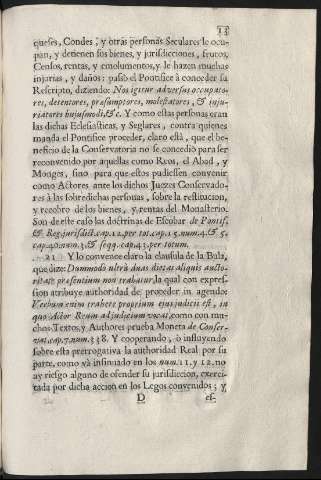 13
queses, Condes, y otras personas Seculares le ocu-
pan, y detienen sus bienes, y jurisdicciones, frutos,
Censos, rentas, y emolumentos, y le hazen muchas
injurias, y daños: passò el Pontifice à conceder su
Rescripto, diziendo: Nos igitur adversus occupato-
res, detentores, præsumptores, molestatores, & inju-
riatores hujusmodi, &c. Y como estas personas eran
las dichas Eclesiasticas, y Seglares, contra quienes
manda el Pontifice proceder, claro està, que el be-
neficio de la Conservatoria no se concediò para ser
reconvenido por aquellas como Reos, el Abad, y
Monges, sino para que estos pudiessen convenir
como Actores ante los dichos Juezes Conservado-
res à las sobredichas personas, sobre la restitucion,
y recobro de los bienes, y rentas del Monasterio.
Son de este caso las doctrinas de Escobar de Pontif.
& Reg. jurisdict. cap. 12. per tot. cap. 15. num. 4. & 5.
cap. 40. num. 3. & seqq. cap. 43. per totum.
21 Y lo convence claro la clausula de la Bula,
que dize: Dummodo ultrà duas dietas aliquis aucto-
ritate præsentium non trahatur, la qual con expres-
sion atribuye authoridad de proceder in agendo:
Verbum enim trahere proprium ejus judicis est, in
quo Actor Reum ad judicium vocat, como con mu-
chos Textos, y Authores prueba Moneta de Conser-
vat. cap. 7. num. 338. Y cooperando, ò influyendo
sobre esta prerrogativa la authoridad Real por su
parte, como và insinuado en los num. 11. y 12. no
ay riesgo alguno de ofender su jurisdiccion, exerci-
tada por dicha accion en los Legos convenidos; y
D es-